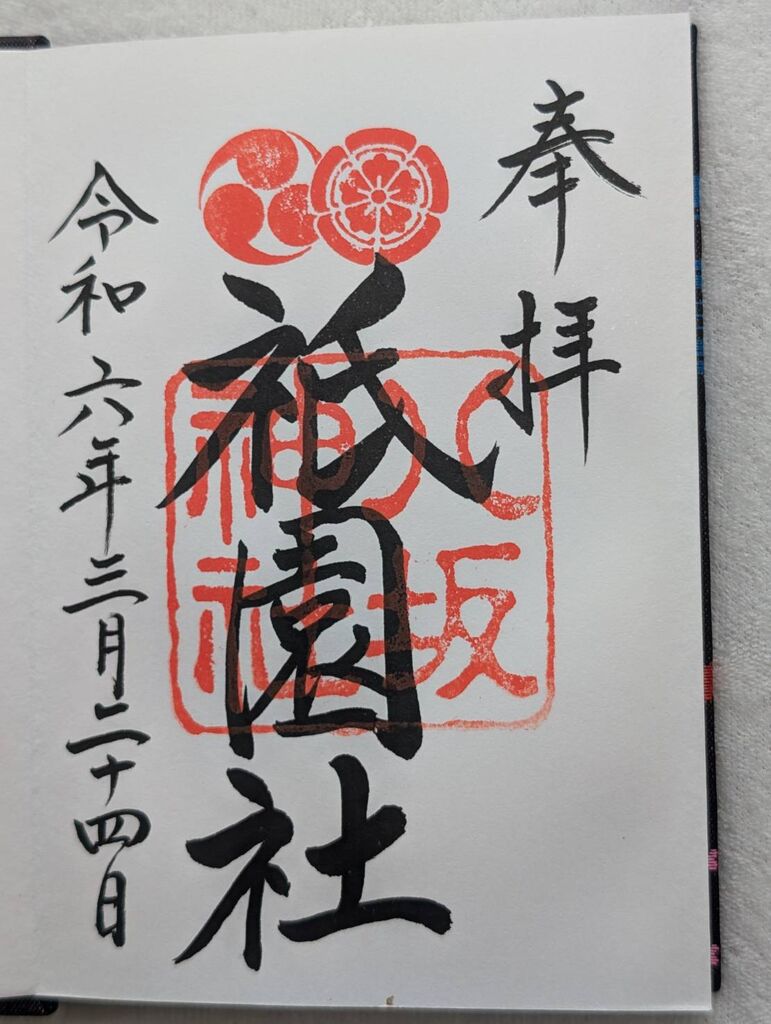 奉拝
八坂
神社
祇園社
令和六年三月二十四日